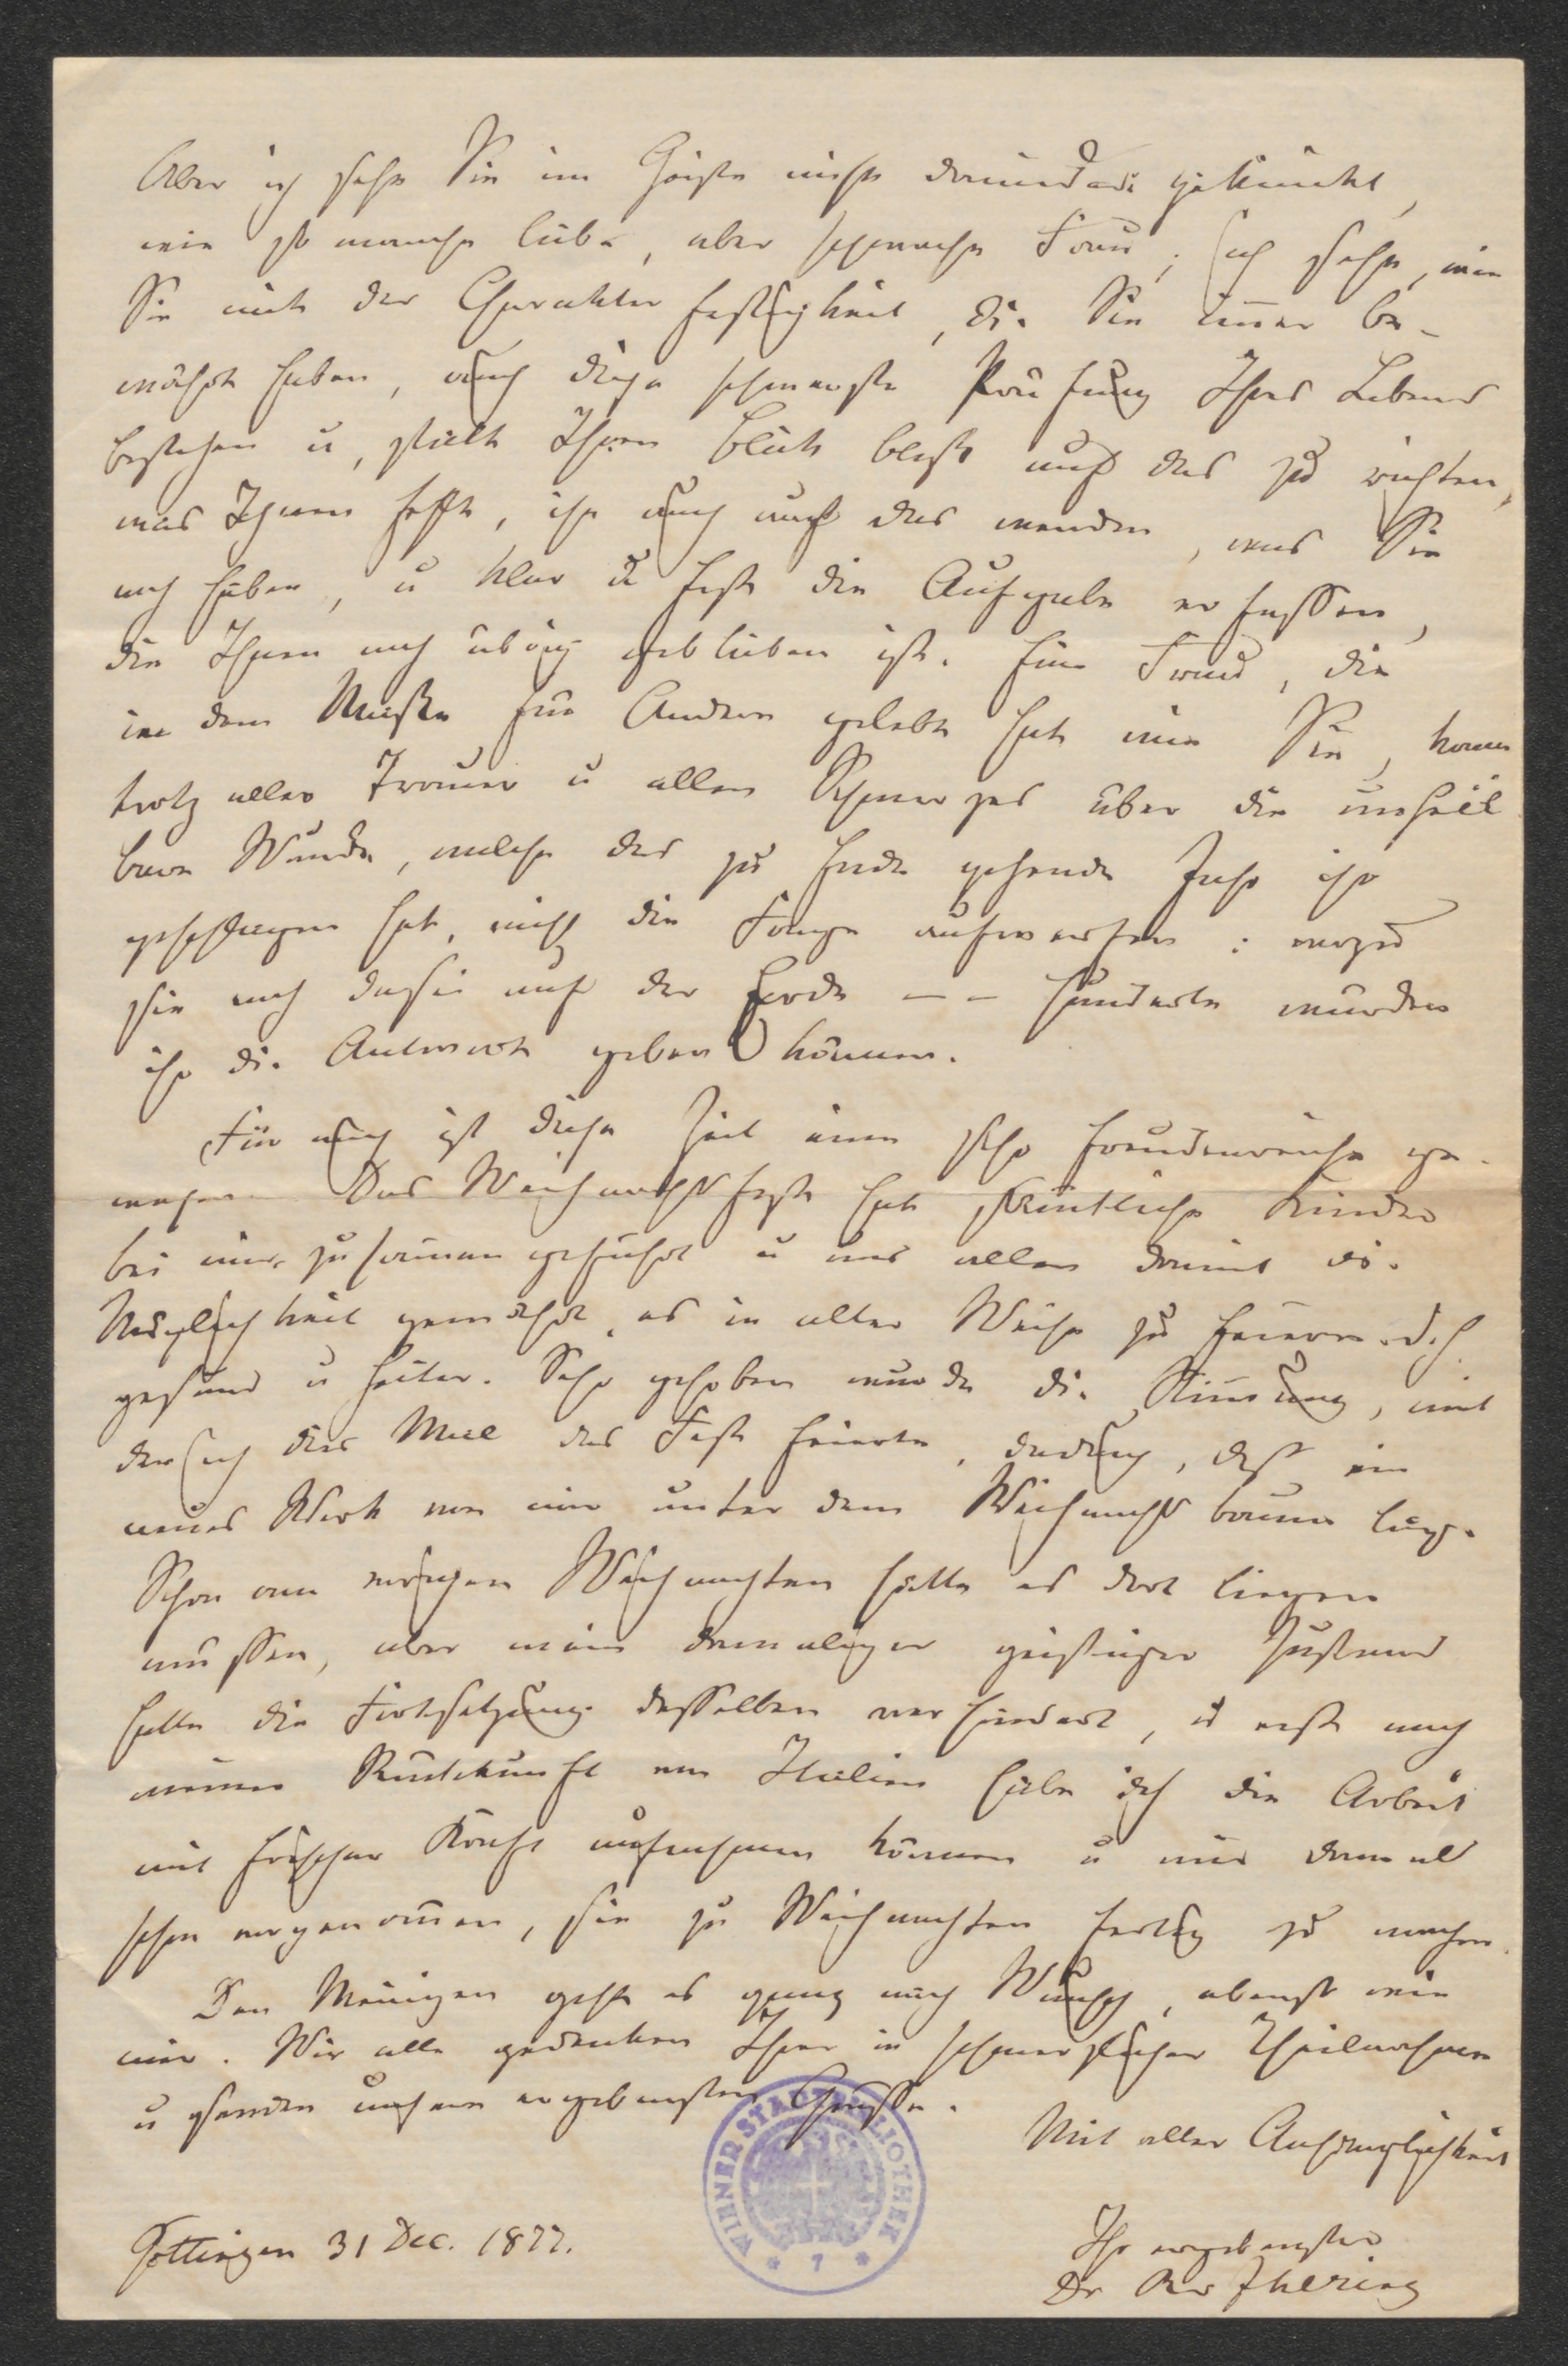 Aber ich sehe Sie im Geiste nicht darnieder geknickt,
wie so manche liebe, aber schwache Frau, ich sehe, wie
Sie mit der Charakterfestigkeit, die Sie immer be-
währt haben, auch diese schwerste Prüfung Ihres Lebens
bestehen u, statt Ihren Blick bloß auf das zu richten,
was Ihnen fehlt, ihn auch auf das wenden, was Sie
noch haben, u klar u fest die Aufgabe erfassen,
die Ihnen noch übrig geblieben ist. Eine Frau, die
in dem Maße für Andere gelebt hat wie Sie, kann
trotz aller Trauer u allen Schmerzes über die unheil
bare Wunde, welche das zu Ende gehende Jahr ihr
geschlagen hat, nicht die Frage aufwerfen: wozu
sie noch da sei auf der Erde -- Hunderte würden
ihr die Antwort geben können.
Für mich ist diese Zeit eine sehr freudenreiche ge-
wesen. Das Weihnachtsfest hat sämtliche Kinder
bei mir zusammengeführt u uns allen damit die
Möglichkeit gewährt, es in alter Weise zu feiern d.h.
gesund u heiter. Sehr gehoben wurde die Stimmung, mit
der ich dies Mal das Fest feierte, dadurch, daß ein
neues Werk von mir unter dem Weihnachtsbaume lag.
Schon am vorigen Weihnachten hätte es dort liegen
müssen, aber mein damaliger geistiger Zustand
hatte die Fortsetzung desselben verhindert, u erst nach
meiner Rückkunft von Italien habe ich die Arbeit
mit frischer Kraft aufnehmen können u mir damals
schon vorgenommen, sie zu Weihnachten fertig zu machen.
Den Meinigen geht es ganz nach Wunsch, ebenso wie
mir. Wir alle gedenken Ihrer in schmerzlicher Theilnahme
u senden unsere ergebensten Grüße.
Mit aller Anhänglichkeit
Ihr ergebenster
Dr Rv Jhering
Göttingen 31 Dec. 1877.
WIENER STADTBIBLIOTHEK
* 7 *